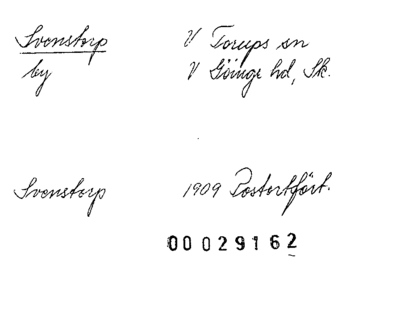 Svenstorp V Torups sn
by V Göinge hd, Sk.
Svenstorp 1909 Postortfört.
00029162